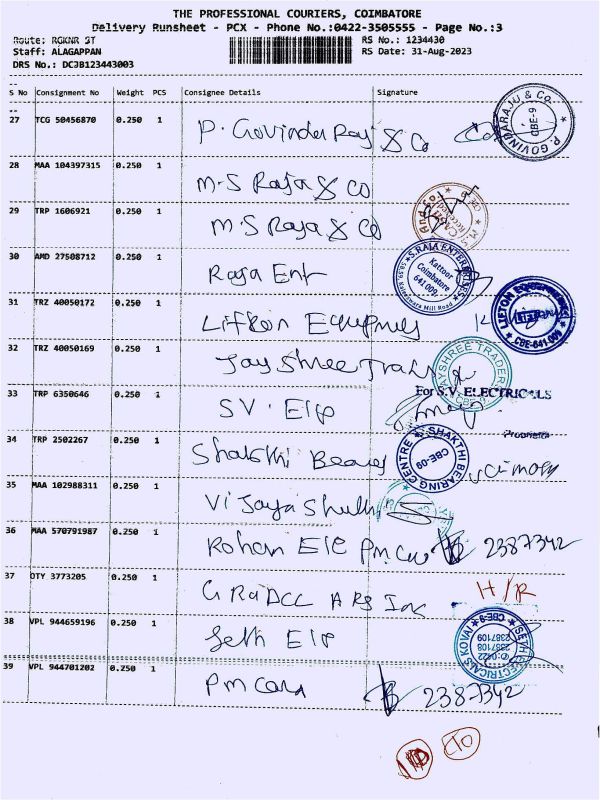 THE PROFESSIONAL COURIERS, COIMBATORE
Delivery Runsheet - PCX - Phone No.:0422-3505555 - Page No.:3
Route: RGKNR ST
RS No.: 1234430
Staff: ALAGAPPAN
RS Date: 31-Aug-2023
DRS No.: DC3B123443003
S No Consignment No Weight PCS Consignee Details Signature
27 TCG 50456870 0.250 1 P. Govinda Raj & Co
P. GOVINDARAJU & Co. CBE-9
28 MAA 104397315 0.250 1 M.S Raja & CO
29 TRP 1606921 0.250 1 M.S Raja & CO
30 AMD 27508712 0.250 1 Raja Ent
S.RAJA ENTERPRISES Kattoor Coimbatore 641 009 Mill Road
31 TRZ 40050172 0.250 1
CBE-641 009
32 TRZ 40050169 0.250 1 Jay Shree
JAYSHREE TRADERS
33 TRP 6350646 0.250 1 SV. Ele
For S.V. ELECTRICALS
Proprietor
34 TRP 2502267 0.250 1 Shakthi
SHAKTHI BEARING CENTRE CBE-09
35 MAA 102988311 0.250 1 Vijaya
36 MAA 570791987 0.250 1 Rohan Ele PM 2387342
37 OTY 3773205 0.250 1
H/R
38 VPL 944659196 0.250 1 Seth Ele
SETH ELECTRICALS KOVAI CBE-9 0422 2387108 2387109
39 VPL 944701202 0.250 1 PM Card 2387342